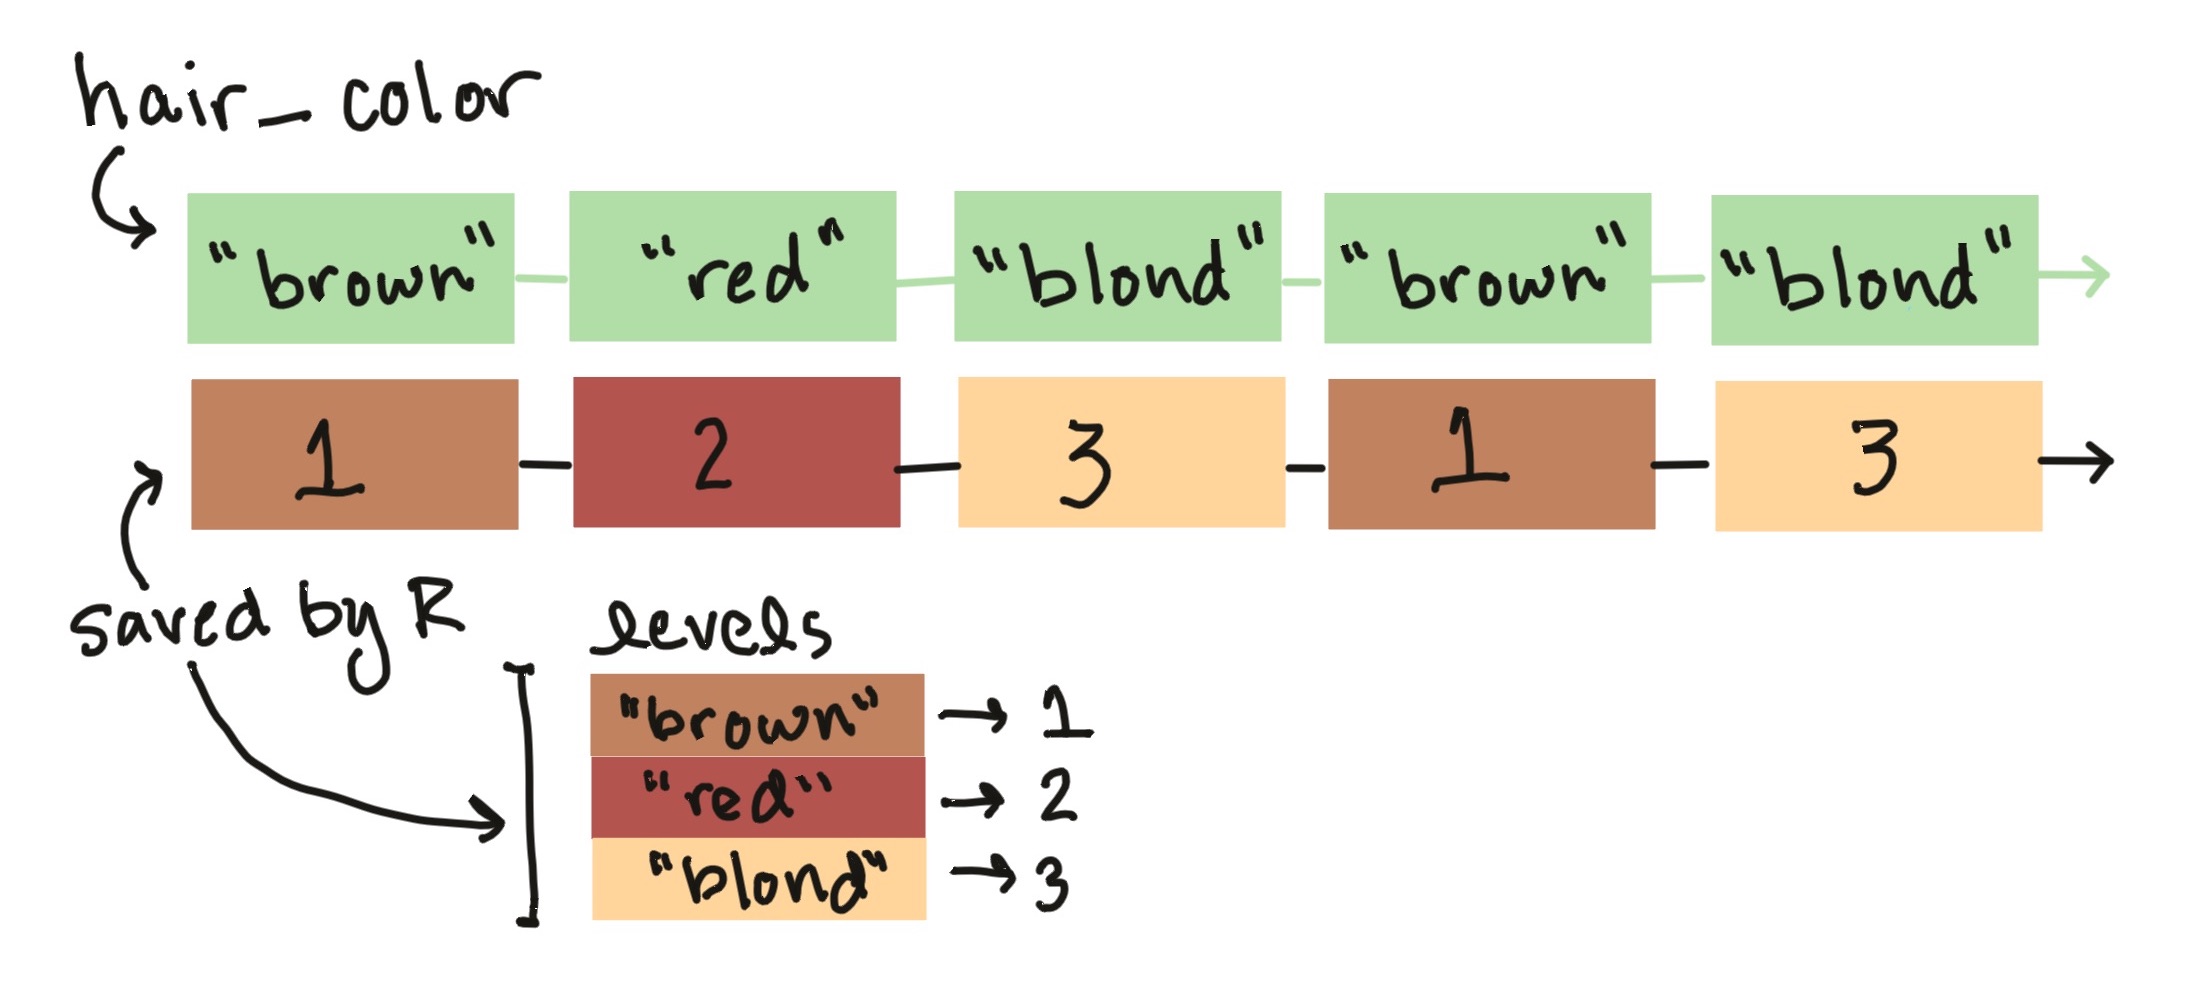 hair_color
"brown" "red" "blond" "brown" "blond"
1 2 3 1 3
saved by R
levels
"brown" → 1
"red" → 2
"blond" → 3